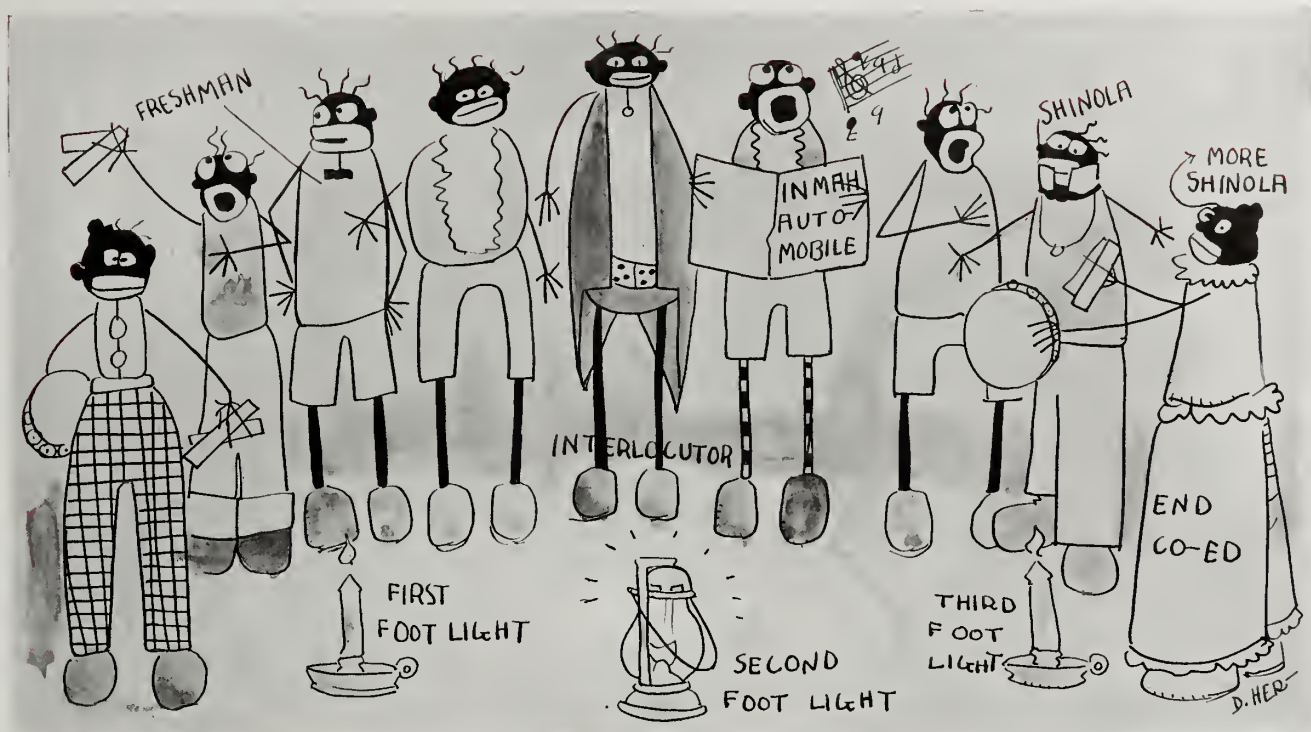 FRESHMAN
SHINOLA
MORE
SHINOLA
IN MAH
AUTO-
MOBILE
INTERLOCUTOR
END
CO-ED
FIRST
FOOT LIGHT
SECOND
FOOT LIGHT
THIRD
FOOT
LIGHT
D. HER-